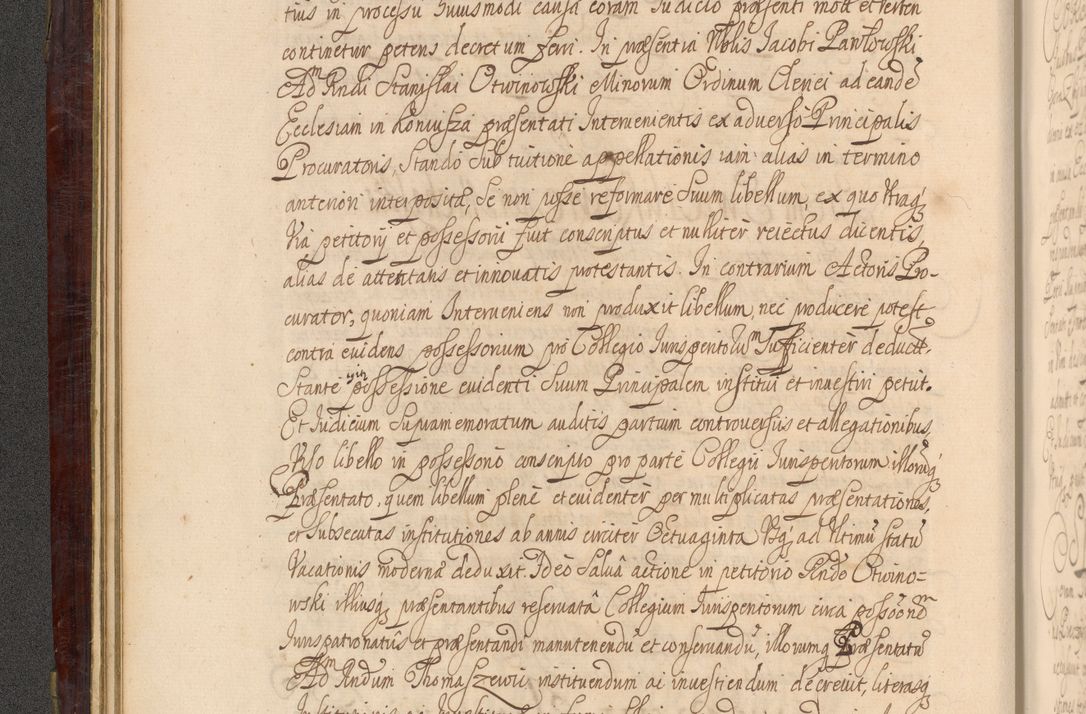 tius in processu huiusmodi causa coram Judicio præsenti mott et verten
continetur petens decretum fieri. In præsentia Nblis Jacobi Pawłowski
Adm Rndi Stanislai Otwinowski Minorum Ordinum Clerici ad eandē
Ecclesiam in Koniusza præsentati Intervenientis ex adverso Principalis
Procuratoris, stando sub tuitione appellationis iam alias in termino
anteriori interposita, se non posse reformare suum libellum, ex quo utrāq
Via petitorij et possessorii fuit conscriptus et nulliter reiectus dicentis,
alias de attentatis et innovatis protestantis. In contrarium Actoris Pro-
curator, quoniam Interveniens non produxit libellum, nec producere potest
contra evidens possessorium pro Collegio Jurisperitorum sufficienter deduct,
Stante in possessione evidenti suum Principalem institui et investiri petiit.
Et Judicium supramemoratum auditis partium controversiis et allegationibus,
Viso libello in possessorio conscripto pro parte Collegii Jurisperitorum illorūq
Præsentato, quem libellum plene et evidenter per multiplicatas præsentationes,
et subsecutas institutiones ab annis circiter Octuaginta Vsq ad Vltimū statū
Vacationis modernæ deduxit. Ideo salvâ actione in petitorio Rndo Otwino=
wski illiusq præsentantibus reservatâ Collegium Jurisperitorum circa possōēm
Jurispatronatûs et præsentandi manutenendū et conservandū, illorumq Præsentatū
Adm Rndum Thomaszewic instituendum ac investiendum decrevit, literasq